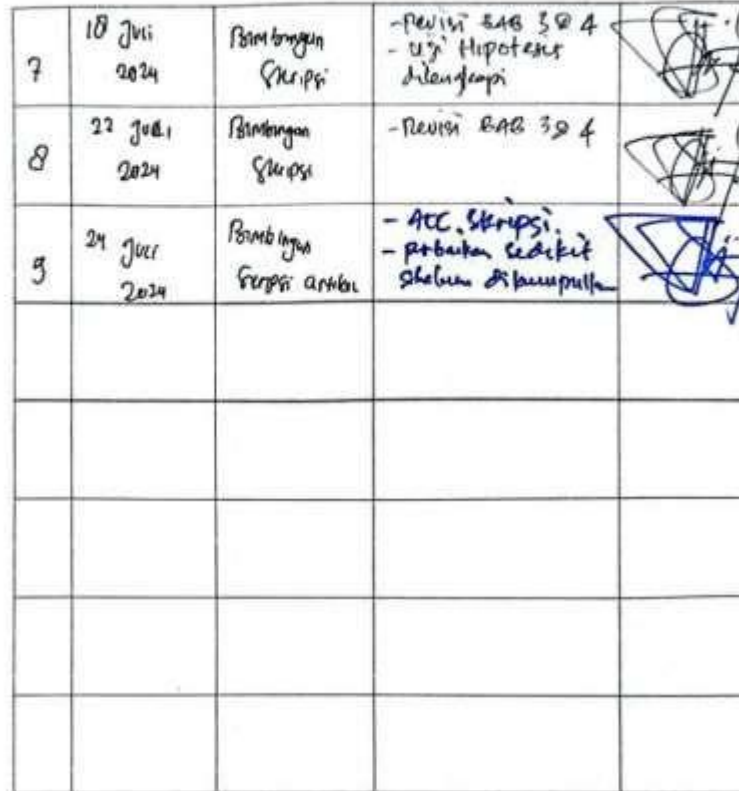 7
18 Juli
2024
Bimbingan
Skripsi
- Revisi BAB 3 & 4
- Uji Hipotesis
dilengkapi
8
22 Juli
2024
Bimbingan
Skripsi
- Revisi BAB 3 & 4
9
24 Juli
2024
Bimbingan
Skripsi artikel
- ACC. Skripsi.
- perbaikan sedikit
sebelum dikumpulkan